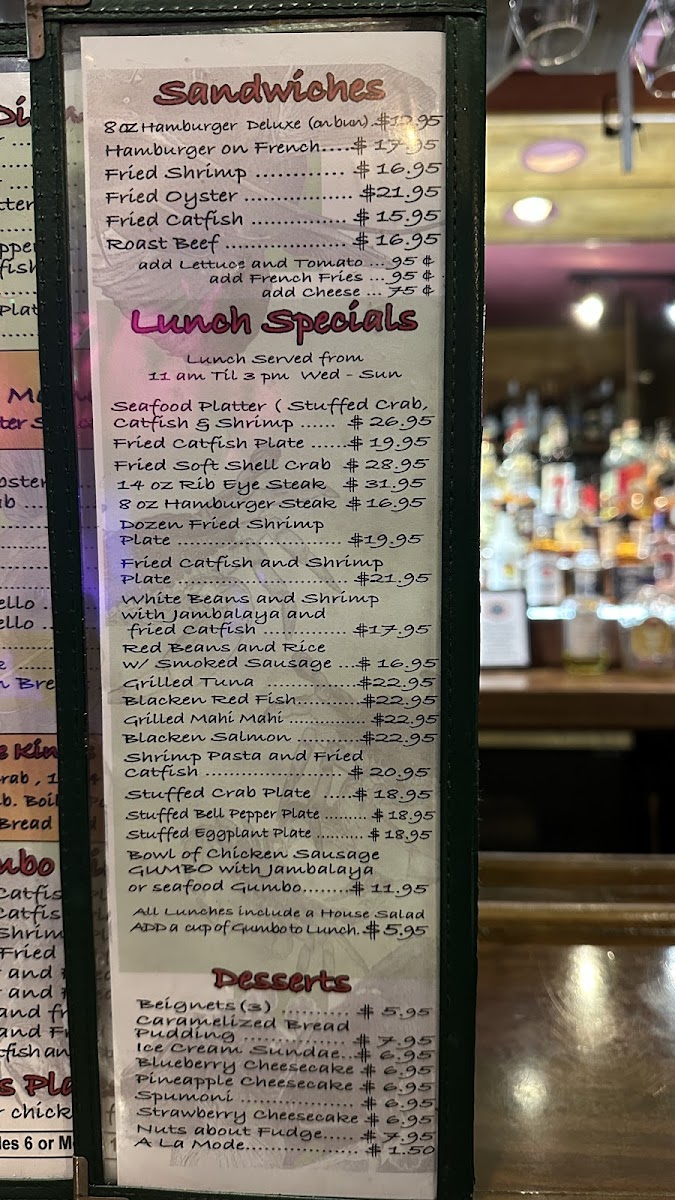 Sandwiches
8 oz Hamburger Deluxe (on bun).$
Hamburger on French....$ 17.95
Fried Shrimp ............ $ 16.95
Fried Oyster ................ $21.95
Fried Catfish .............. $ 15.95
Roast Beef .................. $ 16.95
add Lettuce and Tomato ... 95 ¢
add French Fries ... 95 ¢
add Cheese ... 75 ¢
Lunch Specials
Lunch Served from
11 am Til 3 pm Wed - Sun
Seafood Platter ( Stuffed Crab,
Catfish & Shrimp ...... $ 26.95
Fried Catfish Plate ......$ 19.95
Fried Soft Shell Crab $ 28.95
14 oz Rib Eye Steak $ 31.95
8 oz Hamburger Steak $ 16.95
Dozen Fried Shrimp
Plate ........................ $19.95
Fried Catfish and Shrimp
Plate ......................... $21.95
White Beans and Shrimp
with Jambalaya and
fried Catfish ............ $17.95
Red Beans and Rice
w/ Smoked Sausage ...$ 16.95
Grilled Tuna .............$22.95
Blacken Red Fish.........$22.95
Grilled Mahi Mahi ............$22.95
Blacken Salmon ..........$22.95
Shrimp Pasta and Fried
Catfish .................... $ 20.95
Stuffed Crab Plate .....$ 18.95
Stuffed Bell Pepper Plate ......... $ 18.95
Stuffed Eggplant Plate .......... $ 18.95
Bowl of Chicken Sausage
GUMBO with Jambalaya
or seafood Gumbo........$ 11.95
All Lunches include a House Salad
ADD a cup of Gumbo to Lunch. $ 5.95
Desserts
Beignets (3) .......... $ 5.95
Caramelized Bread
Pudding ............... $ 7.95
Ice Cream Sundae.. $ 6.95
Blueberry Cheesecake $ 6.95
Pineapple Cheesecake $ 6.95
Spumoni ................. $ 6.95
Strawberry Cheesecake $ 6.95
Nuts about Fudge..... $ 7.95
A La Mode................. $ 1.50